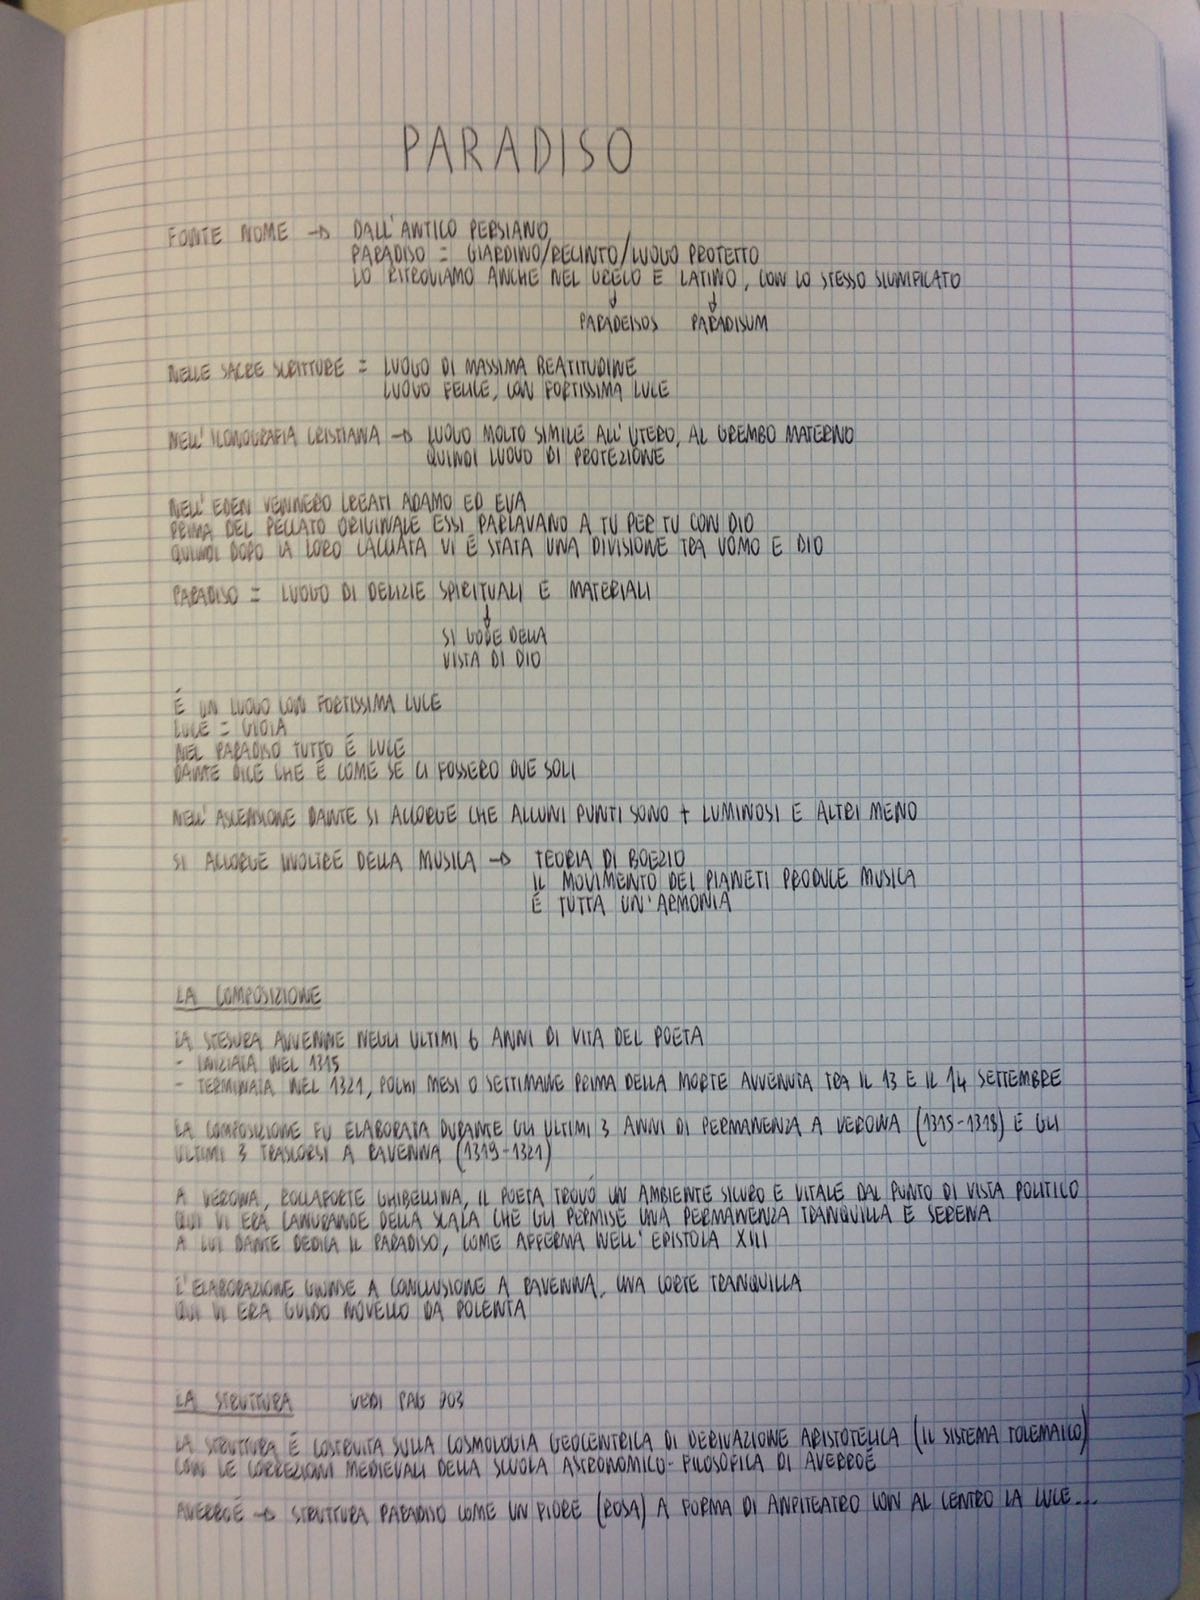 PARADISO
FONTE NOME → DALL'ANTICO PERSIANO
PARADISO = GIARDINO/RECINTO/LUOGO PROTETTO
LO RITROVIAMO ANCHE NEL GRECO E LATINO, CON LO STESSO SIGNIFICATO
↓ ↓
PARADEISOS PARADISUM
NELLE SACRE SCRITTURE = LUOGO DI MASSIMA BEATITUDINE
LUOGO FELICE, CON FORTISSIMA LUCE
NELL'ICONOGRAFIA CRISTIANA → LUOGO MOLTO SIMILE ALL'UTERO, AL GREMBO MATERNO
QUINDI LUOGO DI PROTEZIONE
NELL'EDEN VENNERO CREATI ADAMO ED EVA
PRIMA DEL PECCATO ORIGINALE ESSI PARLAVANO A TU PER TU CON DIO
QUINDI DOPO LA LORO CACCIATA VI É STATA UNA DIVISIONE TRA UOMO E DIO
PARADISO = LUOGO DI DELIZIE SPIRITUALI E MATERIALI
↓
SI GODE DELLA
VISTA DI DIO
É UN LUOGO CON FORTISSIMA LUCE
LUCE = GIOIA
NEL PARADISO TUTTO É LUCE
DANTE DICE CHE É COME SE CI FOSSERO DUE SOLI
NELL'ASCENSIONE DANTE SI ACCORGE CHE ALCUNI PUNTI SONO + LUMINOSI E ALTRI MENO
SI ACCORGE INOLTRE DELLA MUSICA → TEORIA DI BOEZIO
IL MOVIMENTO DEI PIANETI PRODUCE MUSICA
É TUTTA UN'ARMONIA
LA COMPOSIZIONE
LA STESURA AVVENNE NEGLI ULTIMI 6 ANNI DI VITA DEL POETA
- INIZIATA NEL 1315
- TERMINATA NEL 1321, POCHI MESI O SETTIMANE PRIMA DELLA MORTE AVVENUTA TRA IL 13 E IL 14 SETTEMBRE
LA COMPOSIZIONE FU ELABORATA DURANTE GLI ULTIMI 3 ANNI DI PERMANENZA A VERONA (1315-1318) E GLI
ULTIMI 3 TRASCORSI A RAVENNA (1319-1321)
A VERONA, ROCCAFORTE GHIBELLINA, IL POETA TROVÓ UN AMBIENTE SICURO E VITALE DAL PUNTO DI VISTA POLITICO
QUI VI ERA CANGRANDE DELLA SCALA CHE GLI PERMISE UNA PERMANENZA TRANQUILLA E SERENA
A LUI DANTE DEDICA IL PARADISO, COME AFFERMA NELL'EPISTOLA XIII
L'ELABORAZIONE GIUNSE A CONCLUSIONE A RAVENNA, UNA CORTE TRANQUILLA
QUI VI ERA GUIDO NOVELLO DA POLENTA
LA STRUTTURA VEDI PAG 203
LA STRUTTURA É COSTRUITA SULLA COSMOLOGIA GEOCENTRICA DI DERIVAZIONE ARISTOTELICA (IL SISTEMA TOLEMAICO)
CON LE CORREZIONI MEDIEVALI DELLA SCUOLA ASTRONOMICO-FILOSOFICA DI AVERROÉ
AVERROÉ → STRUTTURA PARADISO COME UN FIORE (ROSA) A FORMA DI ANFITEATRO CON AL CENTRO LA LUCE...